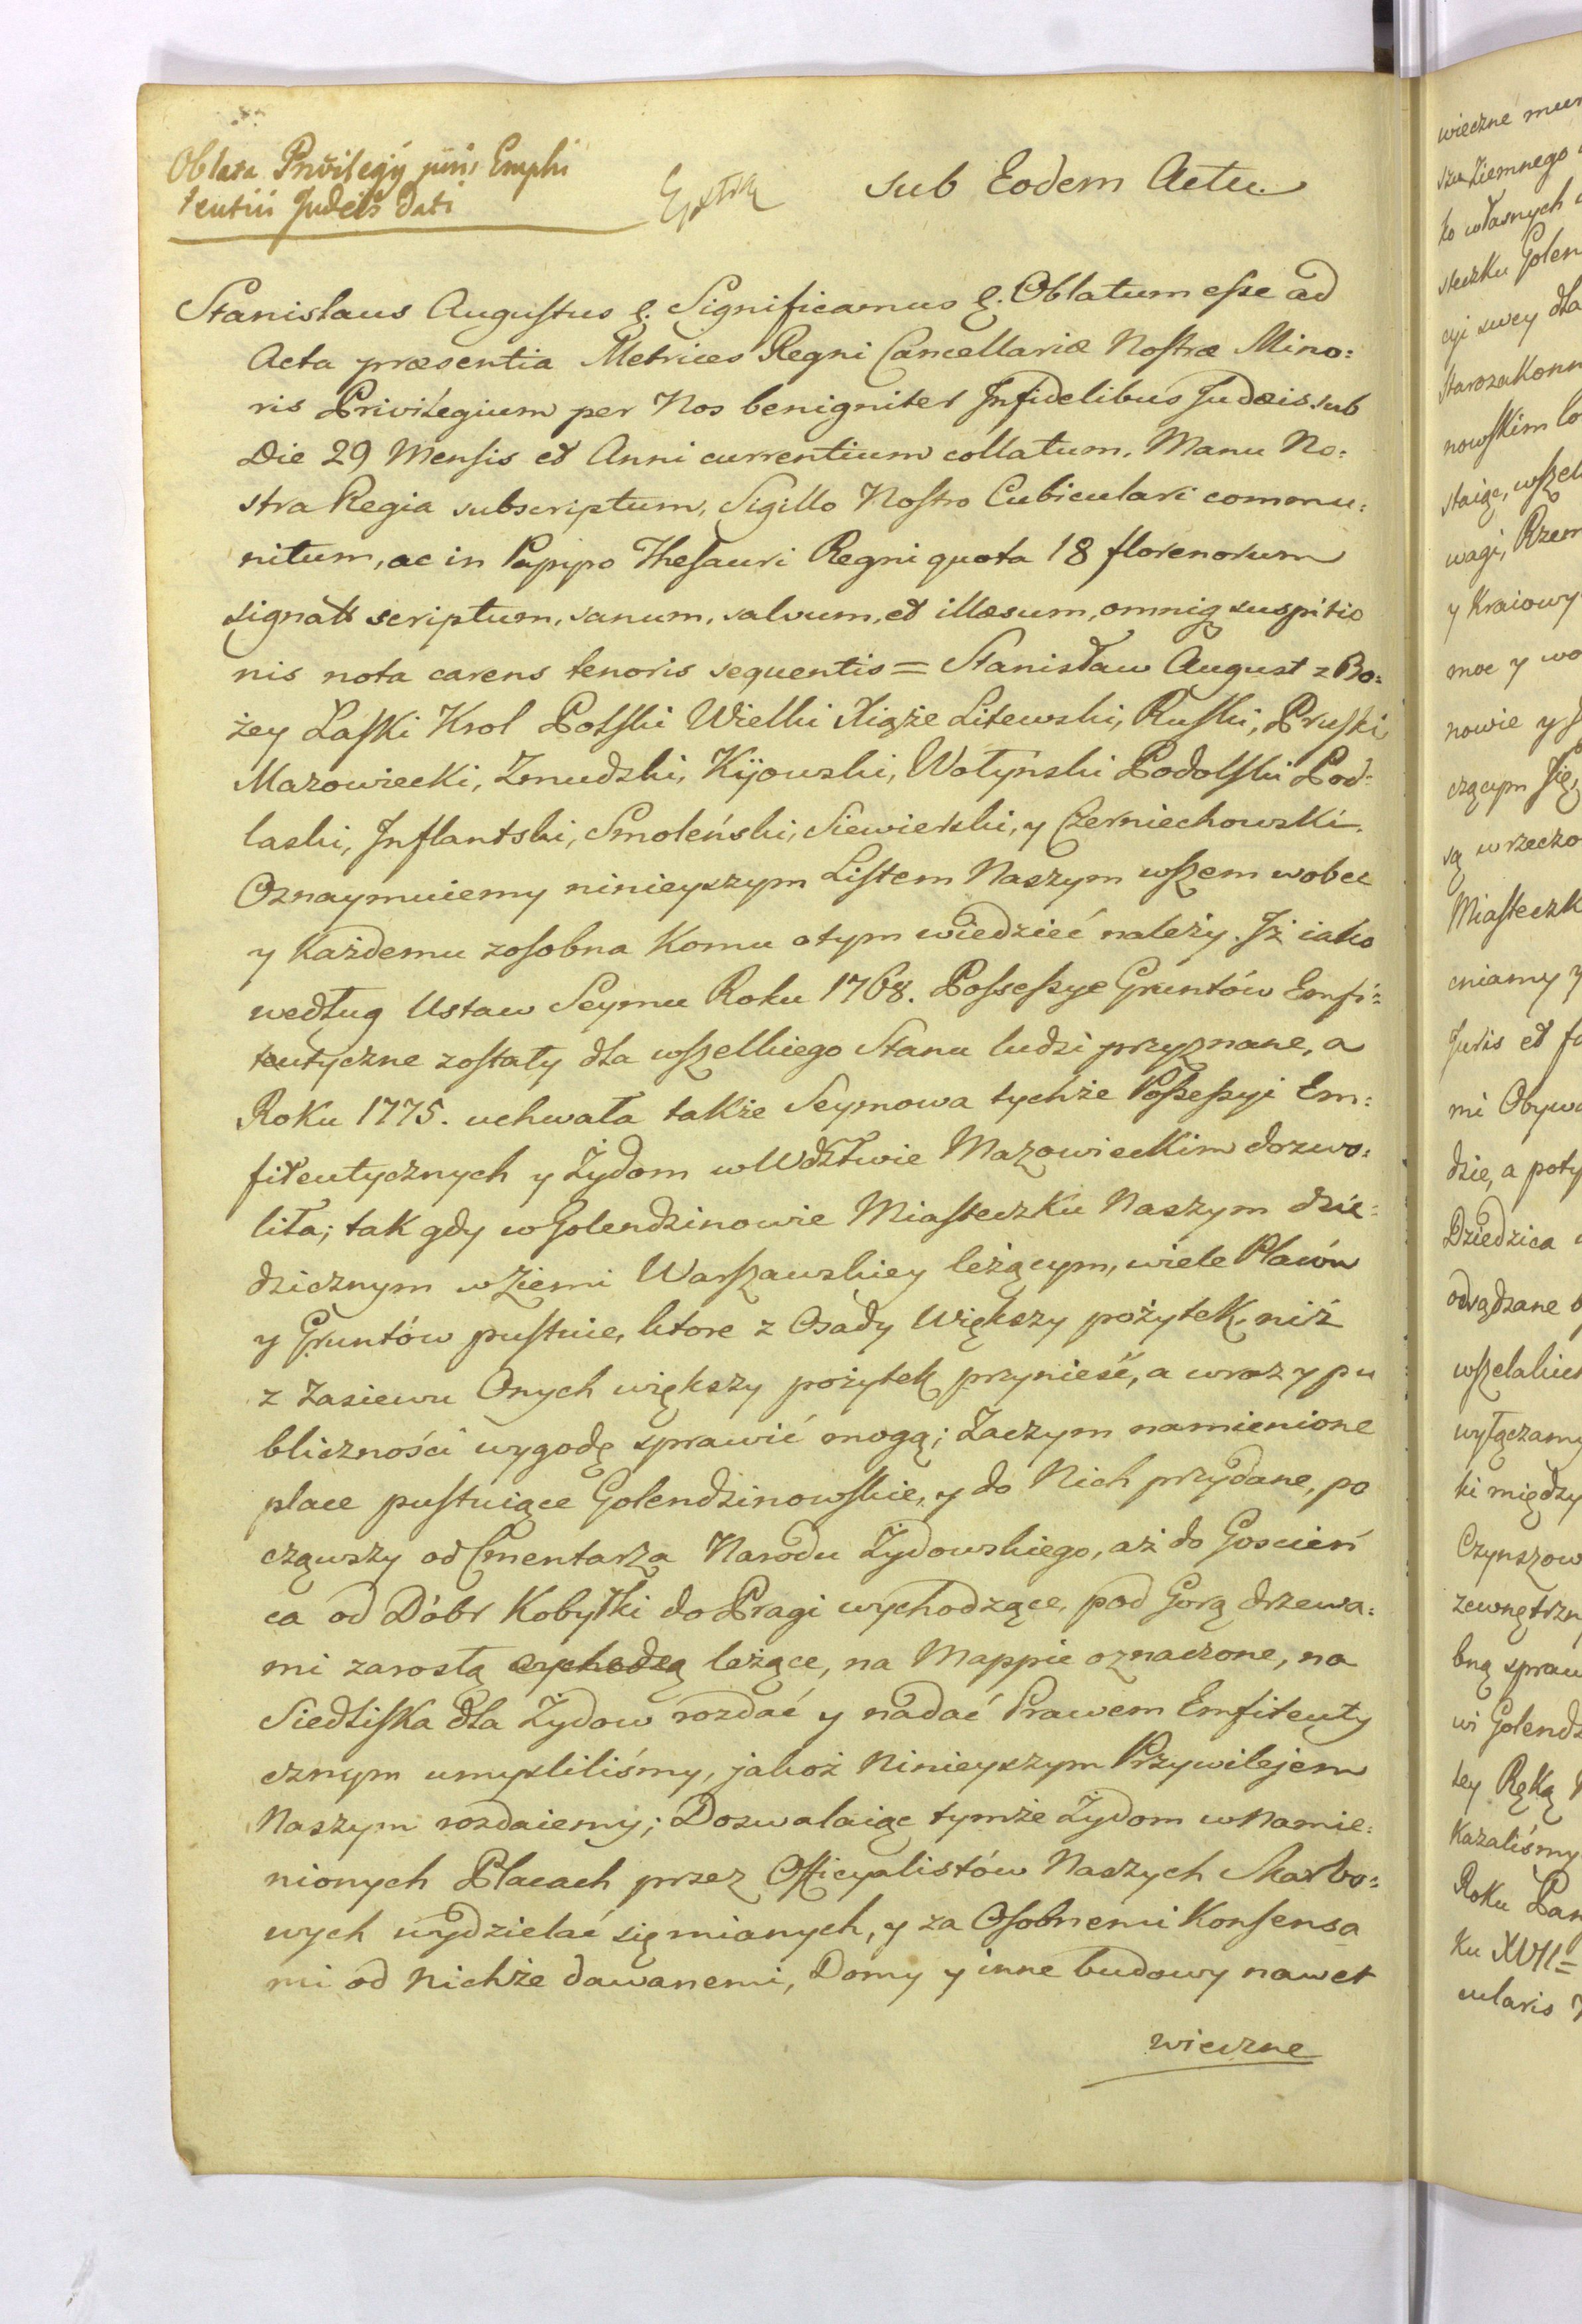 Oblata Privilegij juris Emphi
teutici Judeis dati
Extra
sub Eodem Actu.
Stanislaus Augustus &. Significamus &. Oblatum eſse ad
Acta præsentia Metrices Regni Cancellariæ Noſtræ Mino:
ris Privilegium per Nos benigniter Infidelibus Judæis sub
Die 29 Menſis et Anni currentium collatum. Manu No:
stra Regia subscriptum, Sigillo Noſtro Cubiculari commu:
nitum, ac in Papyro Theſauri Regni quota 18 florenorum
signata scriptum, sanum, salvum, et illæsum, omniq suspitio
nis nota carens tenoris sequentis = Stanisław August z Bo:
żey Łaſki Krol Polſki Wielki Xiąże Litewski, Ruſki, Pruſki,
Mazowiecki, Zmudzki, Kijowski, Wołyński Podolſki Pod:
laski, Inflantski, Smoleński, Siewierski, y Czerniechowski.
Oznaymuiemy ninieyszym Liſtem Naszym wſzem wobec
y Każdemu zoſobna Komu otym wiedzieć należy. Iż iako
według Ustaw Seymu Roku 1768. Poſseſsye Gruntów Emfi:
teutyczne zoſtały dla wſzelkiego Stanu ludzi przyznane, a
Roku 1775. uchwała także Seymowa tychże Poſseſsyi Em:
fiteutycznych y Żydom w Wdztwie Mazowieckim dozwo:
liła; tak gdy w Golendzinowie Miaſteczku Naszym dzie:
dzicznym w Ziemi Warſzawskiey leżącym, wiele Placów
y Gruntów puſtuie, ktore z Osady większy pożytek, niż
z zasiewu Onych większy pożytek przynieść, a wraz y pu
bliczności wygodę sprawić mogą; Zaczym namienione
place puſtuiące Golendzinowſkie, y do Nich przydane, po
cząwszy od Cmentarza Narodu Żydowskiego, aż do Goscień
ca od Dóbr Kobyłki do Pragi wychodzące, pod Gorą drzewa:
mi zarosłą leżące, na Mappie oznaczone, na
Siedliſka dla Żydow rozdać y nadać Prawem Emfiteuty
cznym umyslliśmy, jakoż Ninieyszym Przywilejem
Naszym rozdaiemy; Dozwalaiąc tymże Żydom w Namie:
nionych Placach przez Officyalistów Naszych Skarbo:
wych wydzielać się mianych, y za Oſobnemi Konſensa
mi od Nichże dawanemi, Domy y inne budowy nawet
wieczne
wieczne
Ziemnego
własnych
Golen
swey dla
Starozakonn
wagi, Rzem
y Kraiowy
moc y wo
nowie y
czącym ſię,
są w rzeczo
Miaſteczk
cniamy y
Juris et
mi Obywa
dzie, a poty
Dziedzica
wyłączamy
ki między
Czynszow
zewnętrzn
bną spraw
wi Golendz
tey Ręką
Kazaliśmy
Roku Pań
ku XVII =
cularis